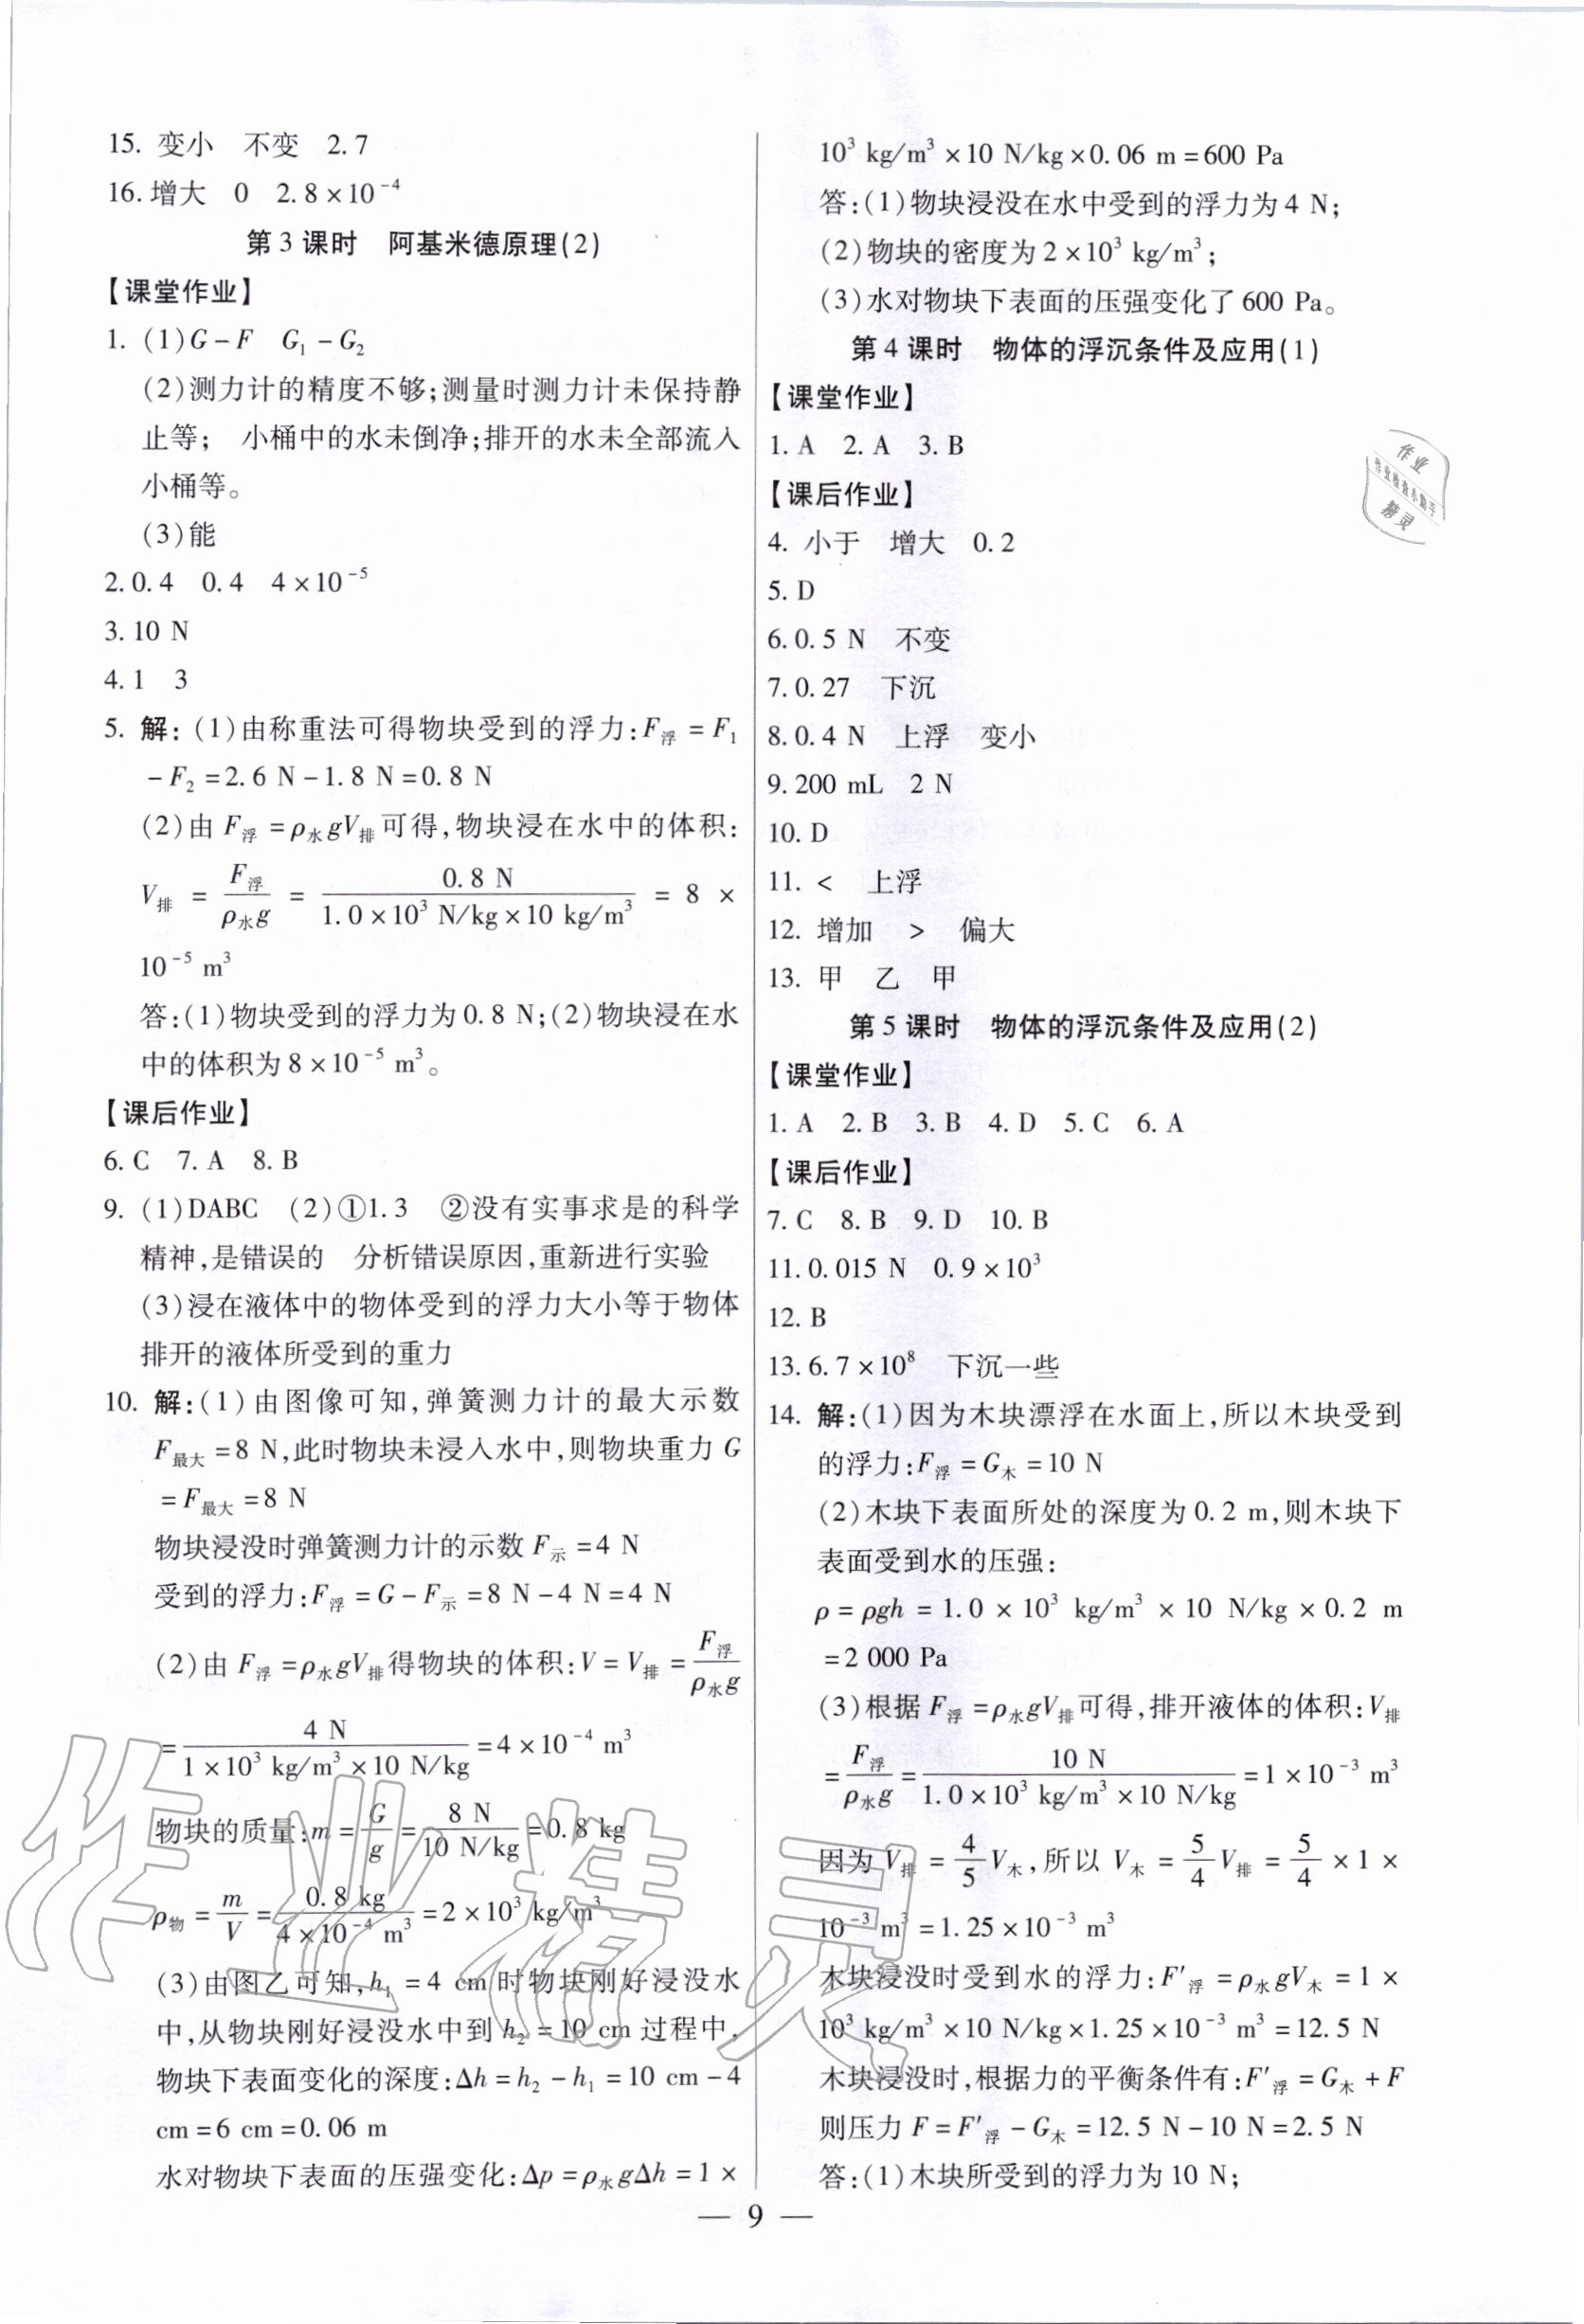 15. 变小 不变 2.7
16. 增大 0 2.8×10⁻⁴
第3课时 阿基米德原理(2)
【课堂作业】
1. (1)G－F G₁－G₂
(2)测力计的精度不够;测量时测力计未保持静
止等; 小桶中的水未倒净;排开的水未全部流入
小桶等。
(3)能
2. 0.4 0.4 4×10⁻⁵
3. 10 N
4. 1 3
5. 解:(1)由称重法可得物块受到的浮力:F浮=F₁
－F₂=2.6 N－1.8 N=0.8 N
(2)由F浮=ρ水gV排可得,物块浸在水中的体积:
V排 = F浮/ρ水g = 0.8 N/1.0×10³ N/kg×10 kg/m³ = 8 ×
10⁻⁵ m³
答:(1)物块受到的浮力为0.8 N;(2)物块浸在水
中的体积为8×10⁻⁵ m³。
【课后作业】
6. C 7. A 8. B
9. (1)DABC (2)①1.3 ②没有实事求是的科学
精神,是错误的 分析错误原因,重新进行实验
(3)浸在液体中的物体受到的浮力大小等于物体
排开的液体所受到的重力
10. 解:(1)由图像可知,弹簧测力计的最大示数
F最大=8 N,此时物块未浸入水中,则物块重力G
=F最大=8 N
物块浸没时弹簧测力计的示数F示=4 N
受到的浮力:F浮=G－F示=8 N－4 N=4 N
(2)由F浮=ρ水gV排得物块的体积:V=V排=F浮/ρ水g
=4 N/1×10³ kg/m³×10 N/kg=4×10⁻⁴ m³
物块的质量:m=G/g=8 N/10 N/kg=0.8 kg
ρ物=m/V=0.8 kg/4×10⁻⁴ m³=2×10³ kg/m³
(3)由图乙可知,h₁=4 cm时物块刚好浸没水
中,从物块刚好浸没水中到h₂=10 cm过程中,
物块下表面变化的深度:Δh=h₂－h₁=10 cm－4
cm=6 cm=0.06 m
水对物块下表面的压强变化:Δp=ρ水gΔh=1×
10³ kg/m³×10 N/kg×0.06 m=600 Pa
答:(1)物块浸没在水中受到的浮力为4 N;
(2)物块的密度为2×10³ kg/m³;
(3)水对物块下表面的压强变化了600 Pa。
第4课时 物体的浮沉条件及应用(1)
【课堂作业】
1. A 2. A 3. B
【课后作业】
4. 小于 增大 0.2
5. D
6. 0.5 N 不变
7. 0.27 下沉
8. 0.4 N 上浮 变小
9. 200 mL 2 N
10. D
11. < 上浮
12. 增加 > 偏大
13. 甲 乙 甲
第5课时 物体的浮沉条件及应用(2)
【课堂作业】
1. A 2. B 3. B 4. D 5. C 6. A
【课后作业】
7. C 8. B 9. D 10. B
11. 0.015 N 0.9×10³
12. B
13. 6.7×10⁸ 下沉一些
14. 解:(1)因为木块漂浮在水面上,所以木块受到
的浮力:F浮=G木=10 N
(2)木块下表面所处的深度为0.2 m,则木块下
表面受到水的压强:
ρ=ρgh=1.0×10³ kg/m³×10 N/kg×0.2 m
=2 000 Pa
(3)根据F浮=ρ水gV排可得,排开液体的体积:V排
=F浮/ρ水g=10 N/1.0×10³ kg/m³×10 N/kg=1×10⁻³ m³
因为V排=4/5V木,所以V木=5/4V排=5/4×1×
10⁻³ m³=1.25×10⁻³ m³
木块浸没时受到水的浮力:F′浮=ρ水gV木=1×
10³ kg/m³×10 N/kg×1.25×10⁻³ m³=12.5 N
木块浸没时,根据力的平衡条件有:F′浮=G木+F
则压力F=F′浮－G木=12.5 N－10 N=2.5 N
答:(1)木块所受到的浮力为10 N;
— 9 —
作业
作业检查小助手
精灵
作业精灵